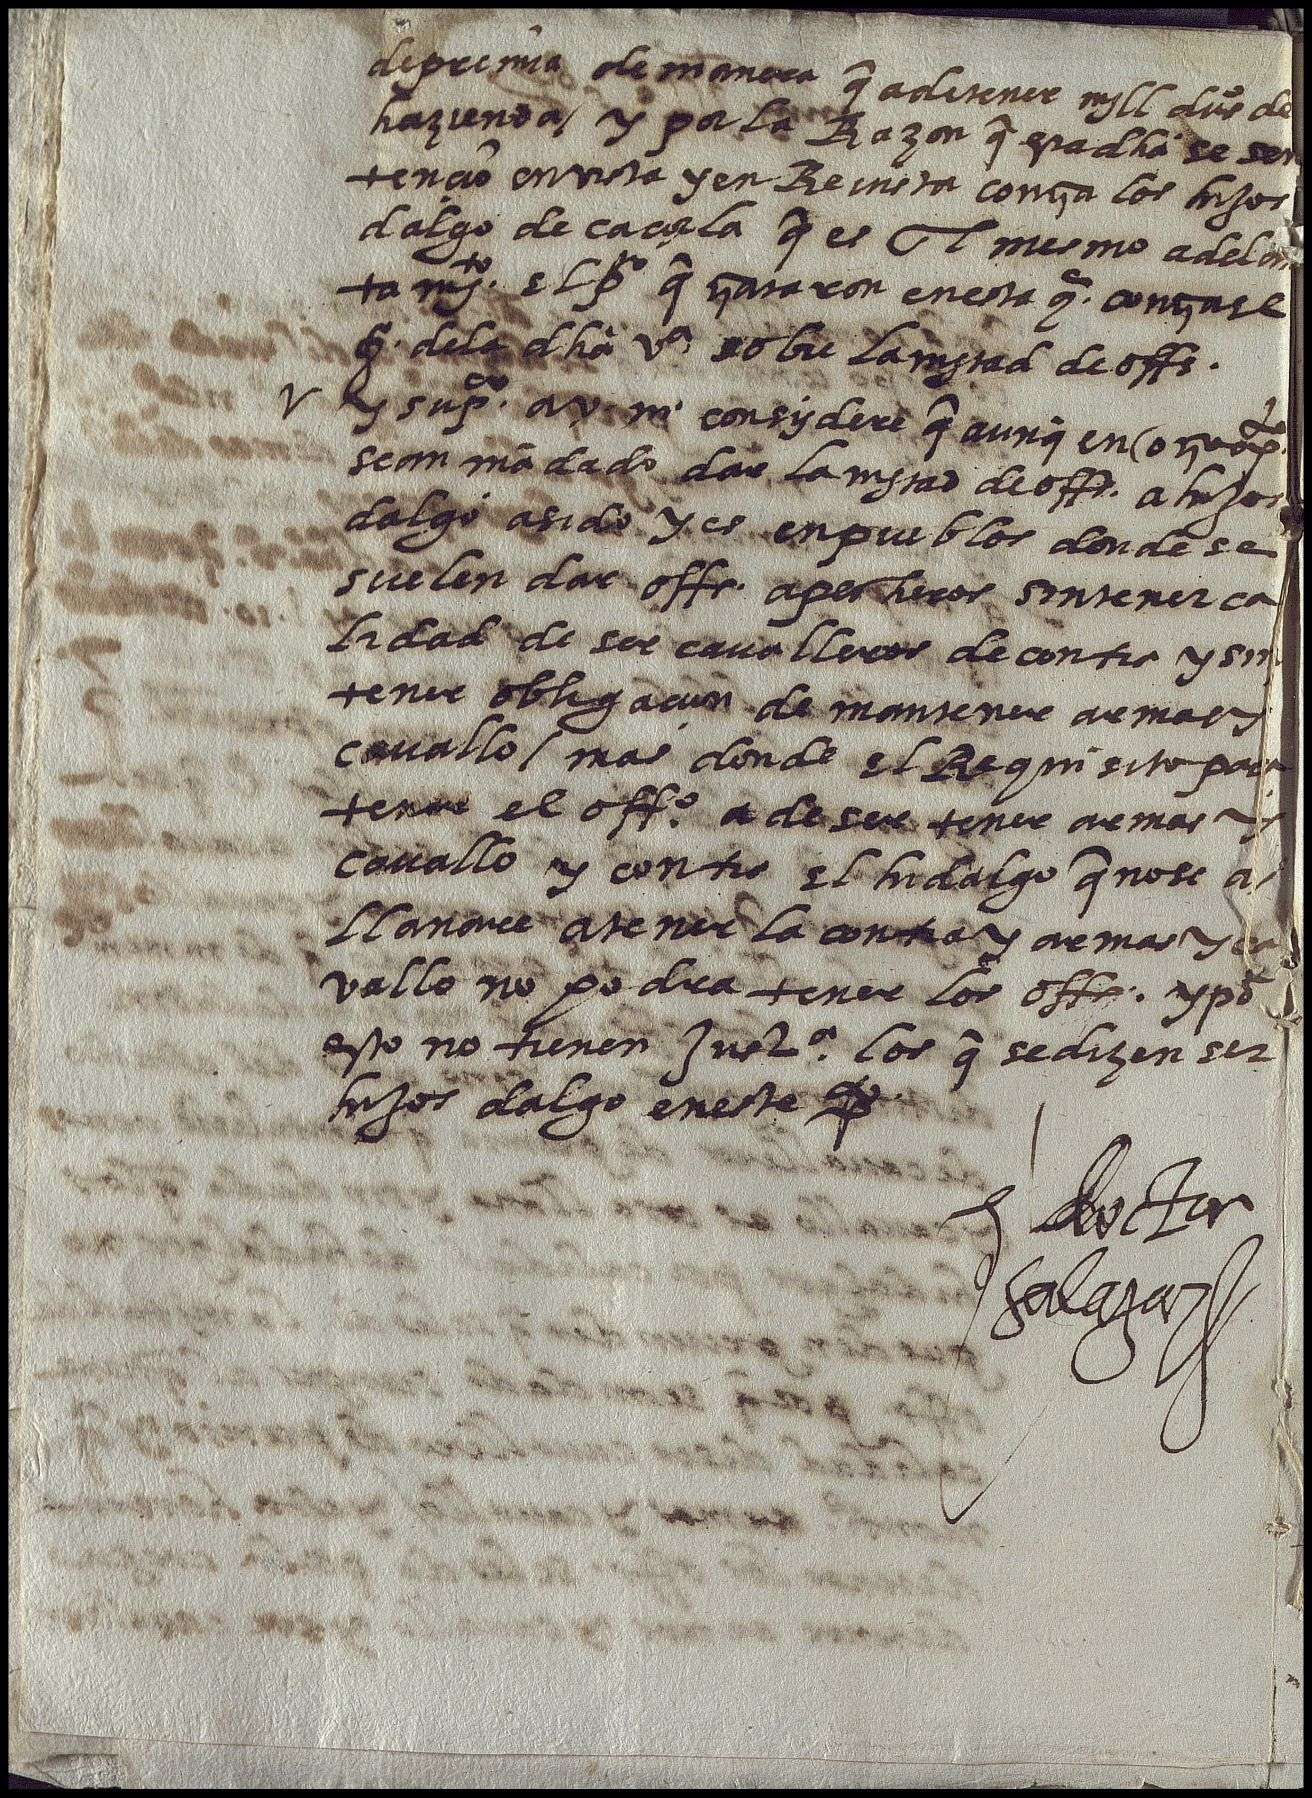 depremia de manera q̃ a de tener mjll dus de
hazienda / y por la Razon q̃ esta dha se sen
tençio en vista y en Revista contra los hijos
dalgo de caçorla q̃ es el mesmo adelan
tamjto. el pto q̃ trataron en esta qa. contra el
qo. dela dha va. sobre la mytad de offs.
V y supco. a v. m. considere q̃ aunq̃ en otras
sean mãdado dar la mytad de offs. a hijos
dalgo a sido y es en pueblos donde se
suelen dar offs. a pecheros sin tener ca
lidad de ser cavalleros de contia y sin
tener obligaçion de mantener armas y
cavallo / mas donde el Requisito para
tener el offo. a de ser tener armas y
cavallo y contia el hidalgo q̃ no se a
llanare a tener la contia y armas y ca
vallo no podra tener los offs. y por
esto no tienen Justa. los q̃ se dizen ser
hijos dalgo en este po
el doctor
salazar